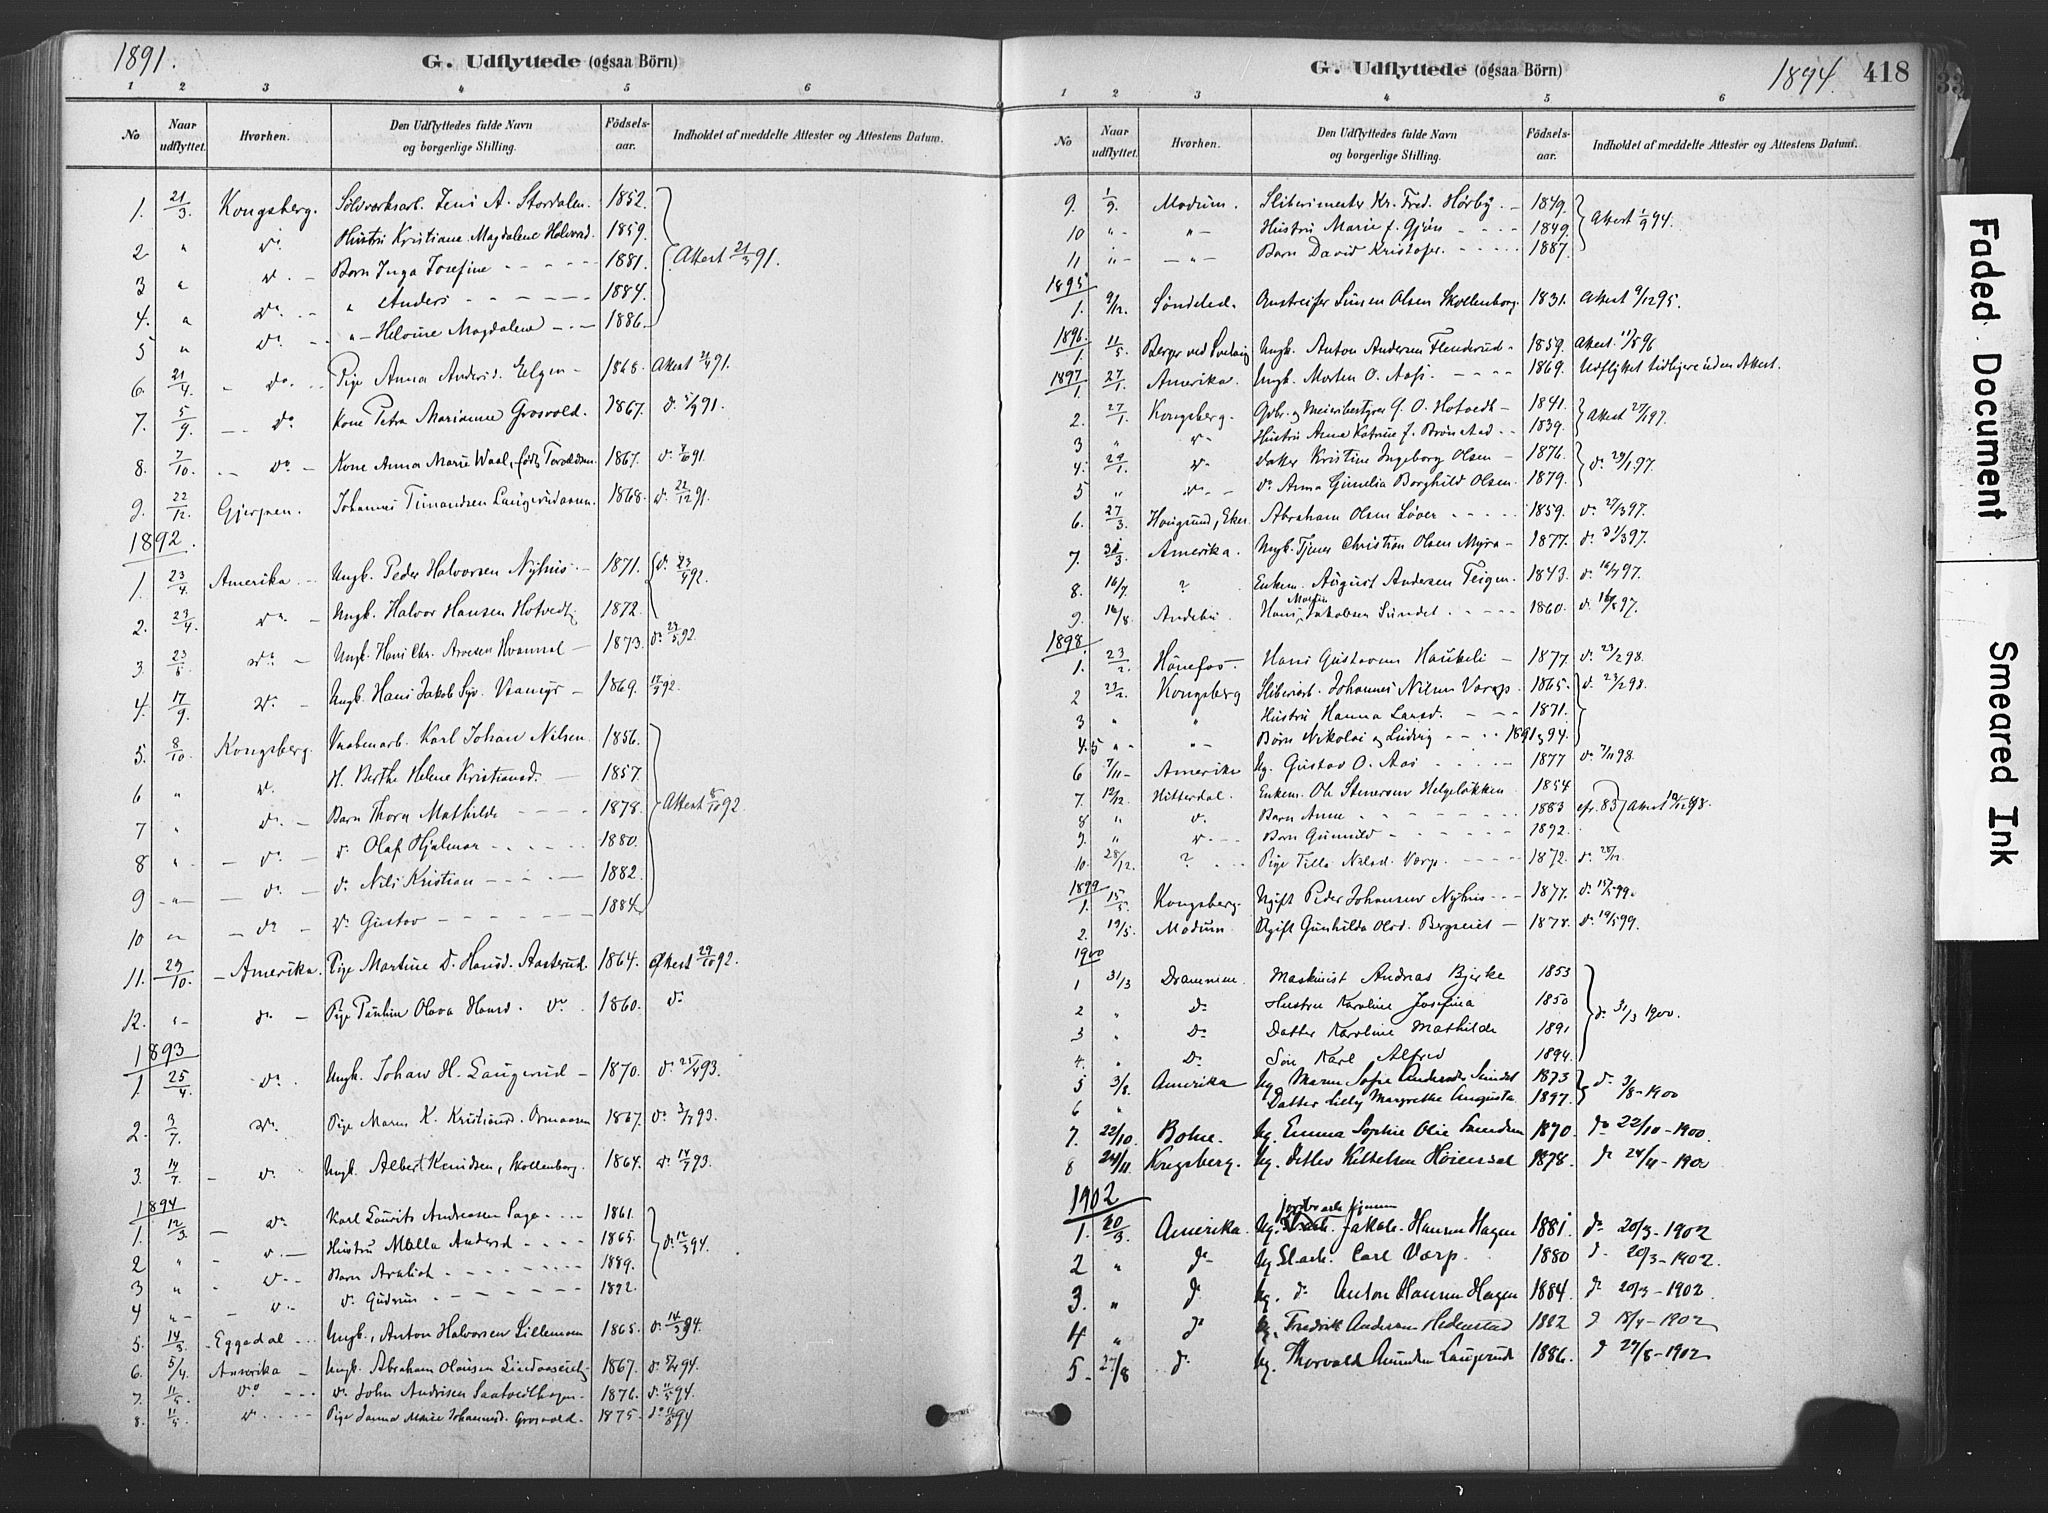 1891.
G. Udflyttede (ogsaa Börn)
1 2 3 4 5 6
No Naar udflyttet. Hvorhen. Den Udflyttedes fulde Navn og borgerlige Stilling. Födselsaar. Indholdet af meddelte Attester og Attestens Datum.
1. 21/3. Kongsberg. Sölvverksarb. Jens A. Stordalen. 1852.
2 " do Hustru Kristiane Magdalene Halvorsd. 1859.
3 " do - Barn Inga Josefine - - - - 1881. Attest 21/3 91.
4. " do " Anders - - - - 1884.
5 " do " - Helvine Magdalene - - 1886.
6. 21/4. - do Pige Anna Andersd. Elgen - 1868. Attest 21/4 91.
7. 5/9. - do Kone Petra Marianne Grosvold. 1867. do 5/9 91.
8. 7/10. - do - Kone Anna Marie Waal, født Toraldsen 1867. do 7/10 91.
9. 22/12. Gjerpen. Johannes Timandsen Laugerudaasen 1868. do 22/12 91.
1892.
1. 23/4. Amerika - Ungk. Peder Halvorsen Nyhus - 1871. do 23/4 92.
2. 23/4. do - Ungk. Halvor Hansen Hotvedt 1872.
3 23/5 do - Ungk. Hans Chr. Arvesen Hvammal - 1873. do 23/5 92
4. 17/9. do - Ungk. Hans Jakob Syv. Vaamyr - 1869. 17/9 92.
5. 8/10 Kongsberg. Vaabenarb. Karl Johan Nilsen. 1856.
6 " do H. Berthe Helene Kristiansd. - 1857.
7 " do - Barn Thora Mathilde 1878. Attest 8/10 92.
8 " - do - do Olaf Hjalmar - - - 1880.
9 - " - do - do Nils Kristian - - - 1882.
10 " - do - do Gustav - - - - 1884.
11. 29/10 - Amerika. Pige Martine D. Hansd. Aasterud. 1864. Attest 29/10 92.
12. " - do - Pige Pauline Olava Hansd. do. 1860. do
1893
1. 25/4 do. Ungk. Johan H. Laugerud - 1870. do 25/4 93.
2. 3/7. do. Pige Maren K. Kristiansd. Ormaasen 1867. do 3/7 93.
3. 14/7. - do. Ungk. Albert Knudsen, Skollenborg. 1864. do 14/7 93.
1894
1. 12/3. - do Karl Laurits Andreassen Sage - - 1861.
2 " - do - Hustru Malla Andersd - - - 1865. do 12/3 94.
3 " - do - Barn - - - - 1889.
4 " - - do - do Gudrun - - - - 1892.
5. 14/3. - Eggedal - - Ungk. Anton Halvorsen Lillemoen 1865. do 14/3 94.
6. 5/4. Amerika - Ungk. Abraham Olausen 1867. do 5/4 94.
7. 11/5. do - - - do John Andersen Saatvedthagen - 1876. do 11/5 94.
8. 11/5 do - - - Pige Janna Marie Johannesd. Grosvold - 1875. do 11/5 94
G. Udflyttede (ogsaa Börn)
1894. 418
1 2 3 4 5 6
No Naar udflyttet. Hvorhen. Den Udflyttedes fulde Navn og borgerlige Stilling. Födselsaar. Indholdet af meddelte Attester og Attestens Datum.
9. 1/9. Modum. Sliberimester Kr. Fred. Hörby. - 1849.
10 " - " - Hustru Marie f. Gjön - - - 1849. Attest 1/9 94.
11 " - - " - Barn David Kristofer. - - - 1887.
1895
1. 9/12. Söndeled. Simen Olsen Skollenborg. 1831. Attest 9/12 95.
1896
1. 11/5. Berger ved Svelvig Ungk. Anton Andersen Flenderud - 1859. Attest. 11/5 96
1897
1. 27/1. Amerika. Ungk. Morten O. Aas. - - - 1869. Udflyttet tidligere uden Attest.
2. 27/1. Kongsberg. Gbr. og Meieribestyrer G. O. Hotvedt - 1841. Attest 27/1 97.
3 " do - Hustru Anna Katrine f. Brønstad - - 1839.
4. 29/1. do - Datter Kristine Ingeborg Olsen - 1876. do 29/1 97.
5 " do - - do Anna Gunelia Borghild Olsen. 1879.
6. 27/3. Hougsund, Eker Abraham Olsen Løver - - - 1859. do 27/3 97.
7. 31/3. Amerika. Ungk. Tjener Christian Olsen Myra - 1877. do 31/3 97.
8. 16/7. ? Enkem. August Andersen Teigen. 1843. do 16/7 97.
9. 16/8. Andebu Hans Martin Jakobsen Sundet - - - 1860. do 16/8 97.
1898.
1. 23/2. Hönefos - Hans Gustavsen Haukeli - 1877. do 23/2 98.
2 23/2. Kongsberg Sliberiarb. Johannes Nilsen Varp. 1865. do 23/2 98.
3 " " Hustru Hanna Larsd. - - - 1871.
4. 5 " - " - Børn Nikolai og Ludvig - - - 1891 og 94.
6 7/11 - Amerika Ug. Gustav O. Aas - - - 1877 do 7/11 98.
7. 12/12. Hitterdal. Enkem. Ole Stenersen Helgeløkken 1854
8 " do. Barn Anne - - - - 1883 cfr. 83 Attest 12/12 98.
9. " do - - Barn Gunnild - - - - 1892.
10. 28/12. ? - - Pige Tilla Nilsd. Varp. - - - 1872. do 28/12.
1899
1. 15/5. Kongsberg. Ugift Peder Johansen Nyhus - - - 1877. do 15/5 99.
2. 19/5. Modum. Ugift Gunhilda Olsd. Bergseiet - 1878. do 19/5 99.
1900
1 31/3 Drammen. Maskinist Andreas Bjerke 1853
2 " do Hustru Karoline Josefina 1850
3 " Do Datter Karoline Mathilde 1891 do 31/3 1900.
4. " Do Søn Karl Alfred 1894.
5 3/8. Amerika Ug Maren Sofie Andersdt. Sundet 1873
6 " Datter Lilly Margrethe Augusta 1897. do 3/8 - 1900
7. 22/10. Botne. Ug. Emma Sophie Olie Sandsen 1870. do 22/10 - 1900.
8 24/11. Kongsberg. Ug. Detlev Kittelsen Høiensal 1878. do 24/11 - 1900
1902
1. 20/3. Amerika. Ug. Jakob Hansen Hagen 1881. do 20/3 - 1902
2 " do - Ug Sl.arb. Carl Varp. 1880 do 20/3 - 1902.
3. " do Ug. do Anton Hansen Hagen 1884. do 20/3 - 1902
4 " do Ug. Fredrik Andersen Hedenstad 1882 do 18/4 - 1902
5 - 27/8 do - Ug. Thorvald Amundsen Laugerud 1886. do 27/8 - 1902
Faded Document
Smeared Ink